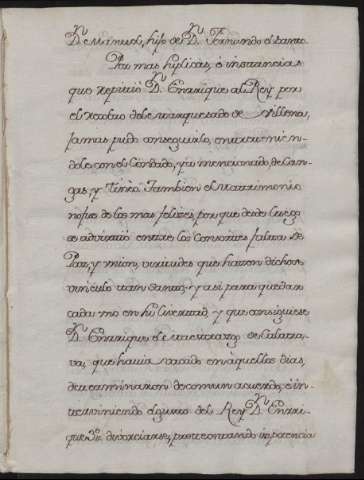 Dn. Manuel, hijo de Dn. Fernando el Santo.
Por mas suplicas, è instancias
que repitiò Dn. Enrrique al Rey por
el Estado del Marquesado de Villena,
jamas pudo conseguirlo, entretenien-
dole con el Condado, ya mencionado, de Can-
gas, y Tineo. Tambien el Matrimonio
no fue de los mas felices, por que desde luego
se advirtiò entre los Consortes falta de
Paz, y union, virtudes que hacen dichoso
vinculo tan santo; y asi para quedar
cada uno en su livertad, y que consiguiese
Dn. Enrrique el Maestrazgo de Calatra-
va, que havia vacado en aquellos dias,
determinaron de comun acuerdo, è in-
terviniendo el gusto del Rey Dn. Enrri-
que 3o. divorciarse, protextando impotencia